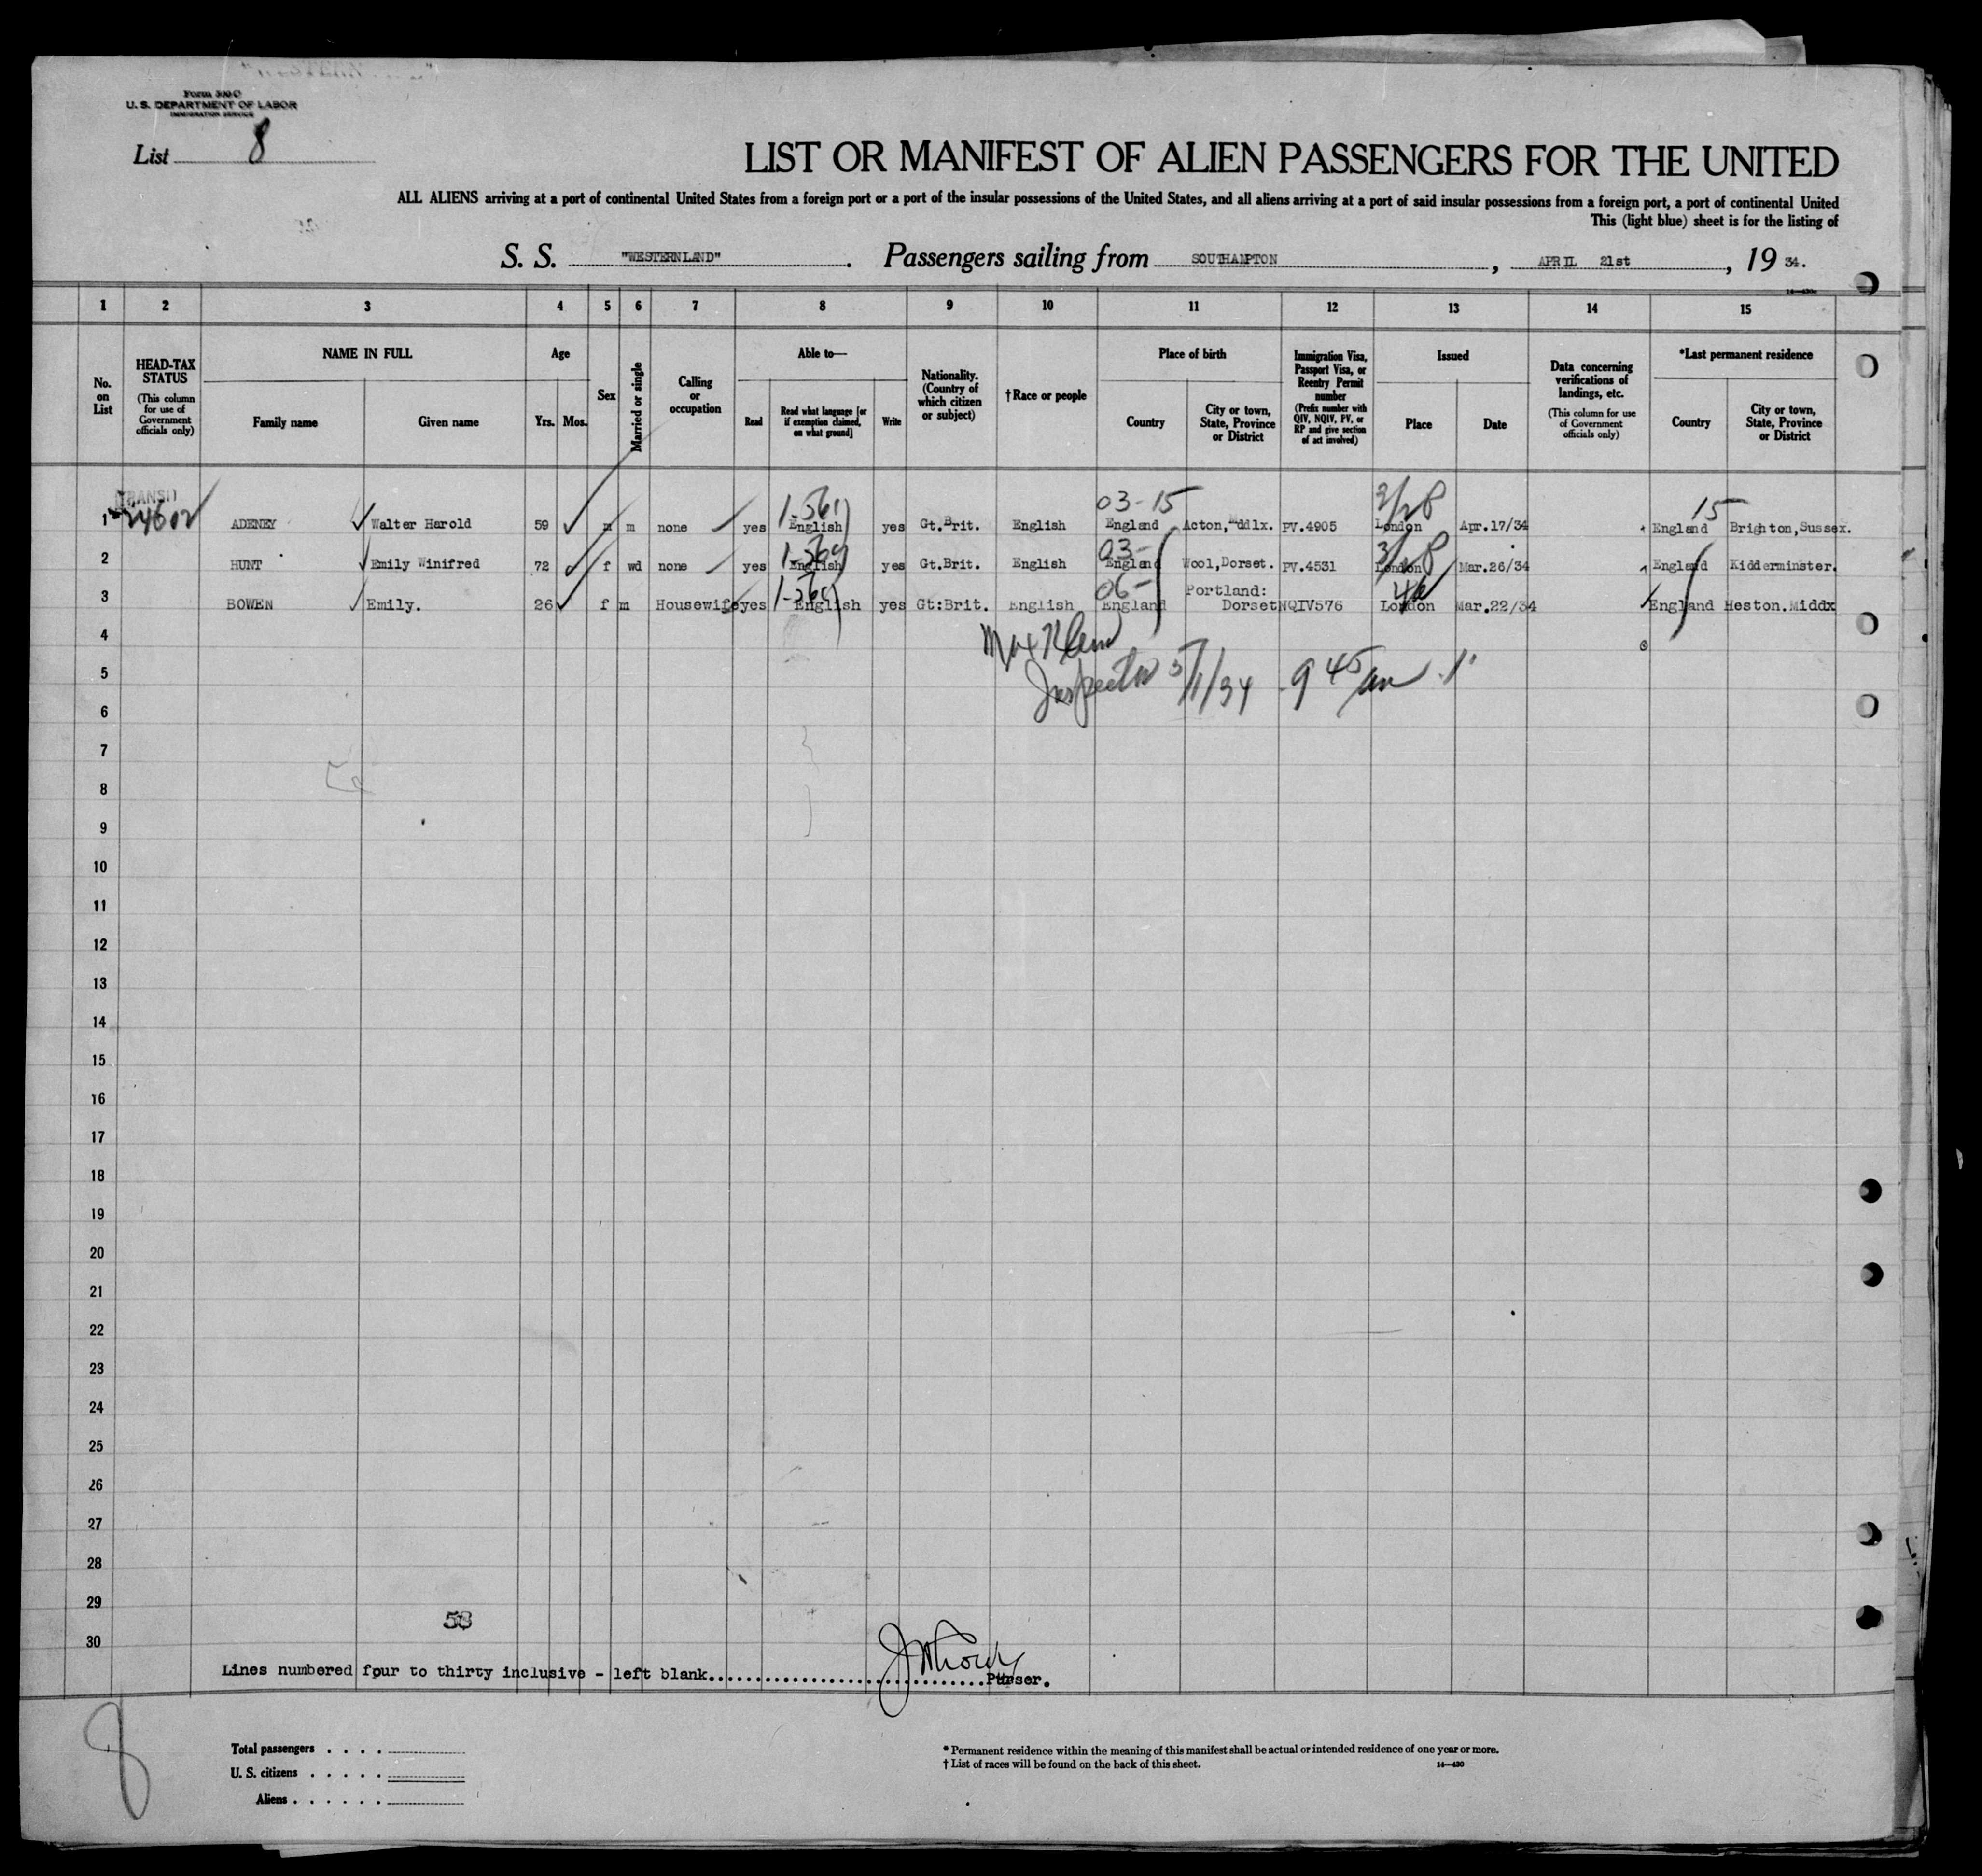 Form 500 C
U. S. DEPARTMENT OF LABOR
IMMIGRATION SERVICE
List 8
LIST OR MANIFEST OF ALIEN PASSENGERS FOR THE UNITED
ALL ALIENS arriving at a port of continental United States from a foreign port or a port of the insular possessions of the United States, and all aliens arriving at a port of said insular possessions from a foreign port, a port of continental United
This (light blue) sheet is for the listing of
S. S. "WESTERNLAND". Passengers sailing from SOUTHAMPTON, APRIL 21st, 19 34.
1 2 3 4 5 6 7 8 9 10 11 12 13 14 15
No. on List
HEAD-TAX STATUS (This column for use of Government officials only)
NAME IN FULL
Family name Given name
Age
Yrs. Mos.
Sex
Married or single
Calling or occupation
Able to—
Read Read what language [or if exemption claimed, on what ground] Write
Nationality. (Country of which citizen or subject)
†Race or people
Place of birth
Country City or town, State, Province or District
Immigration Visa, Passport Visa, or Reentry Permit number (Prefix number with QIV, NQIV, PV, or RP and give section of act involved)
Issued
Place Date
Data concerning verifications of landings, etc. (This column for use of Government officials only)
*Last permanent residence
Country City or town, State, Province or District
TRANSIT 03-15 3/28 15
1 ADENEY Walter Harold 59 m m none yes English yes Gt.Brit. English England Acton,Mddlx. PV.4905 London Apr.17/34 England Brighton,Sussex.
03- 3/28
2 HUNT Emily Winifred 72 f wd none yes English yes Gt.Brit. English England Wool,Dorset. PV.4531 London Mar.26/34 England Kidderminster.
06- Portland:
3 BOWEN Emily. 26 f m Housewife yes English yes Gt:Brit. English England Dorset NQIV576 London Mar.22/34 England Heston.Middx
4
Inspector 5/1/34 9 45 am
5
6
7
8
9
10
11
12
13
14
15
16
17
18
19
20
21
22
23
24
25
26
27
28
29
58
30
Lines numbered four to thirty inclusive - left blank..............................Purser.
8
Total passengers . . . .
U. S. citizens . . . . .
Aliens . . . . . .
* Permanent residence within the meaning of this manifest shall be actual or intended residence of one year or more.
† List of races will be found on the back of this sheet. 14—430